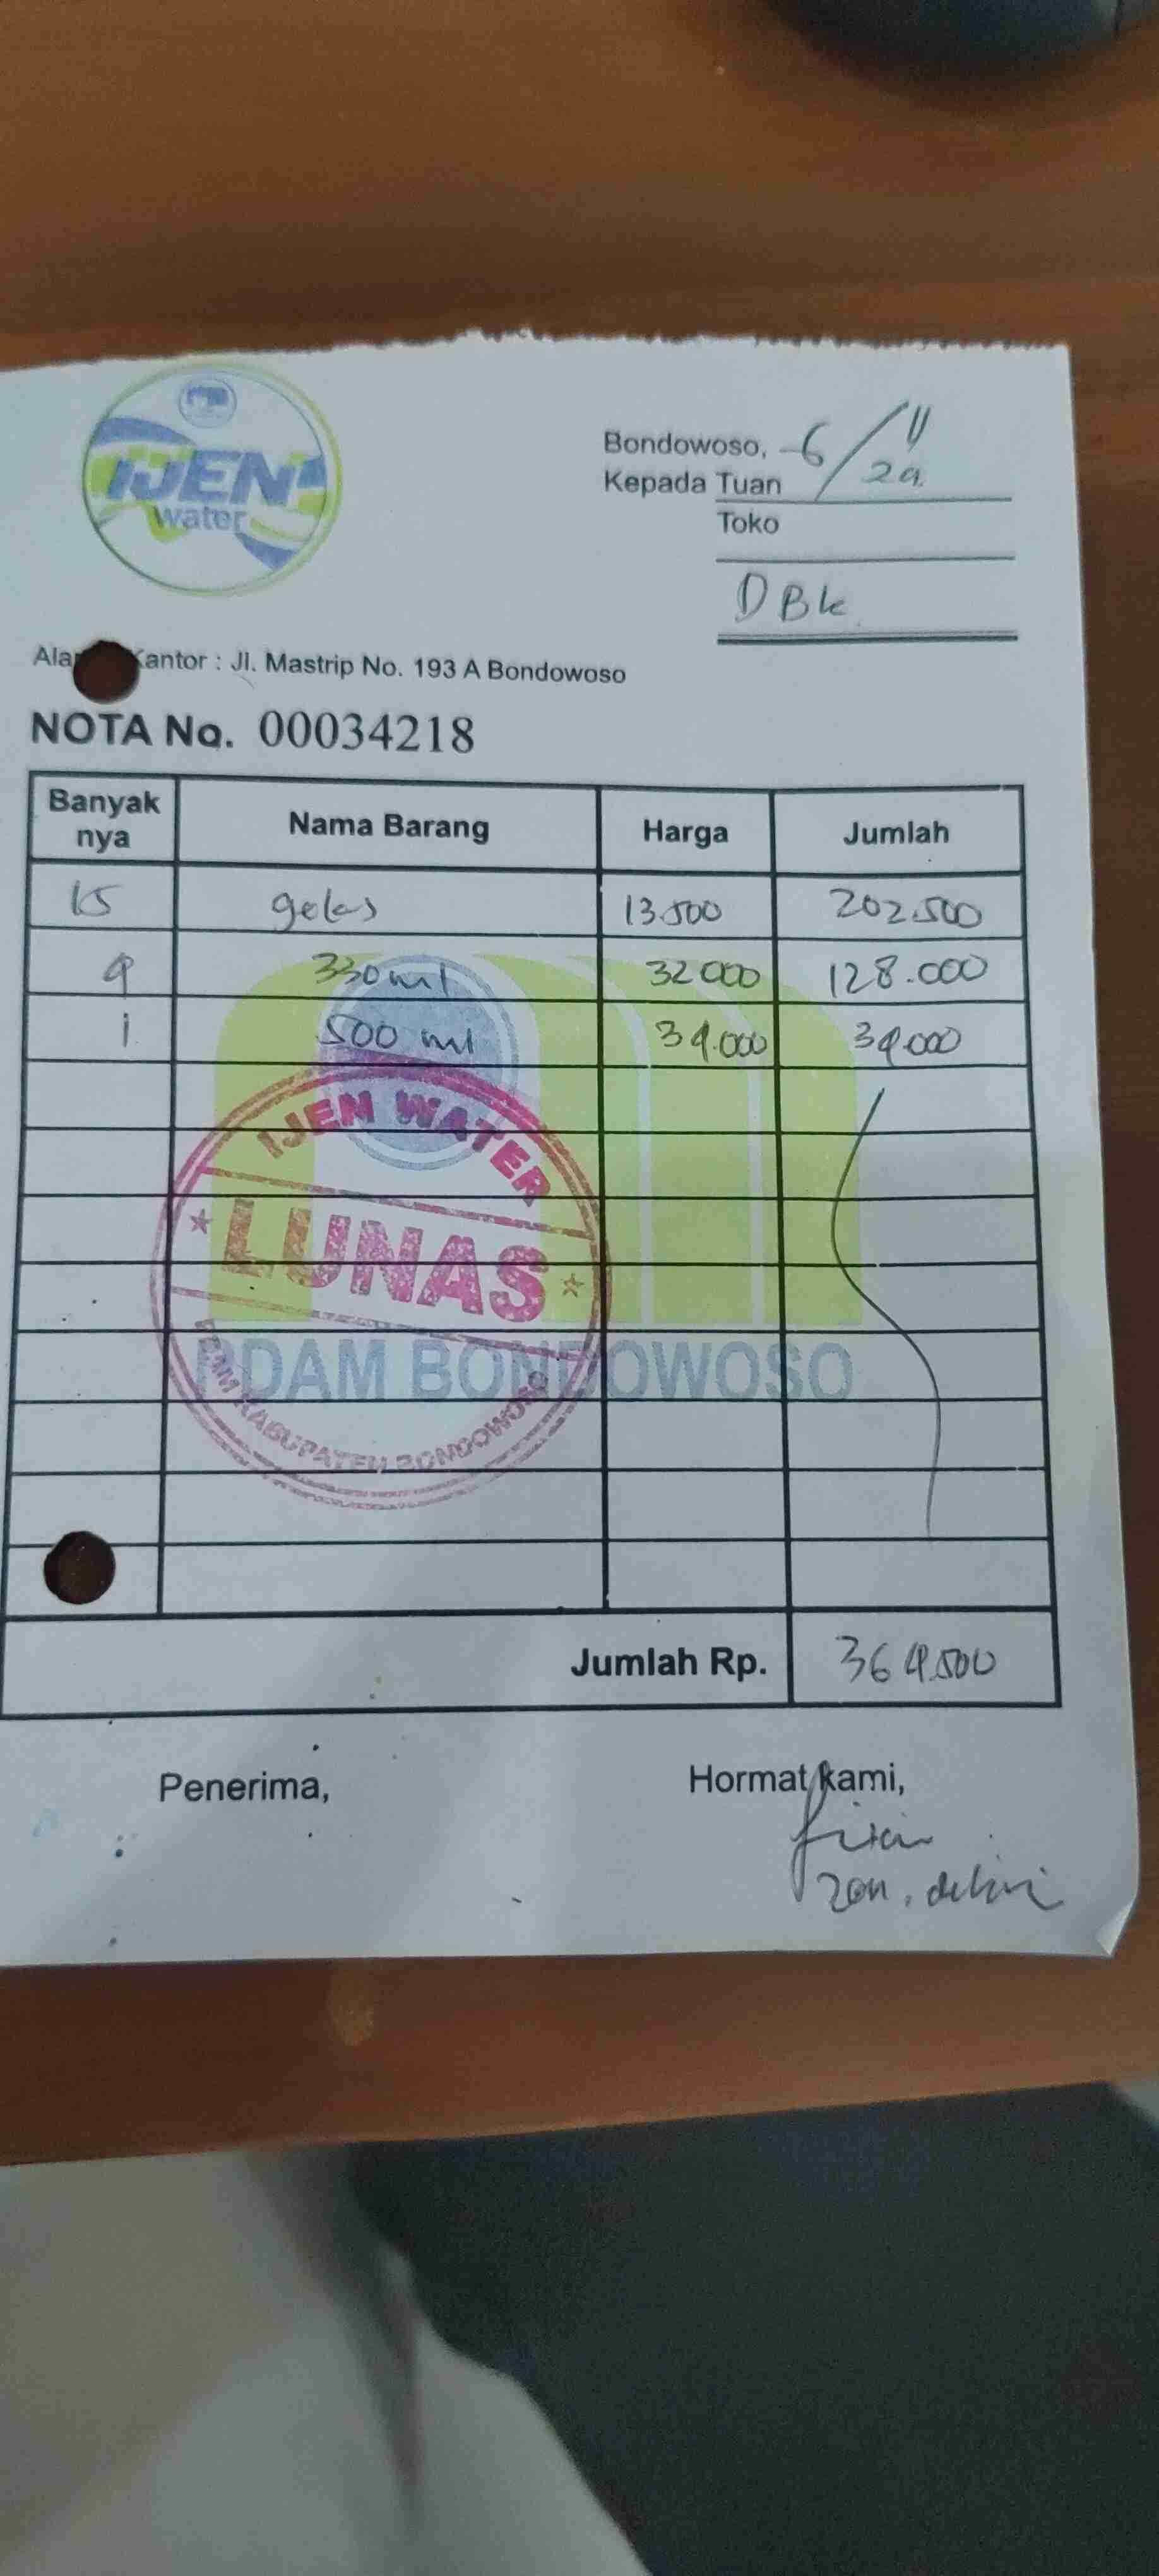 IJEN
water
Bondowoso, 6/11
24
Kepada Tuan
Toko
DBK
Kantor : Jl. Mastrip No. 193 A Bondowoso
NOTA No. 00034218
Banyak nya Nama Barang Harga Jumlah
15 gelas 13.500 202.500
4 330 ml 32000 128.000
1 500 ml 34.000 34.000
IJEN WATER
LUNAS
PDAM KABUPATEN BONDOWOSO
PDAM BONDOWOSO
Jumlah Rp. 364.500
Penerima, Hormat kami,